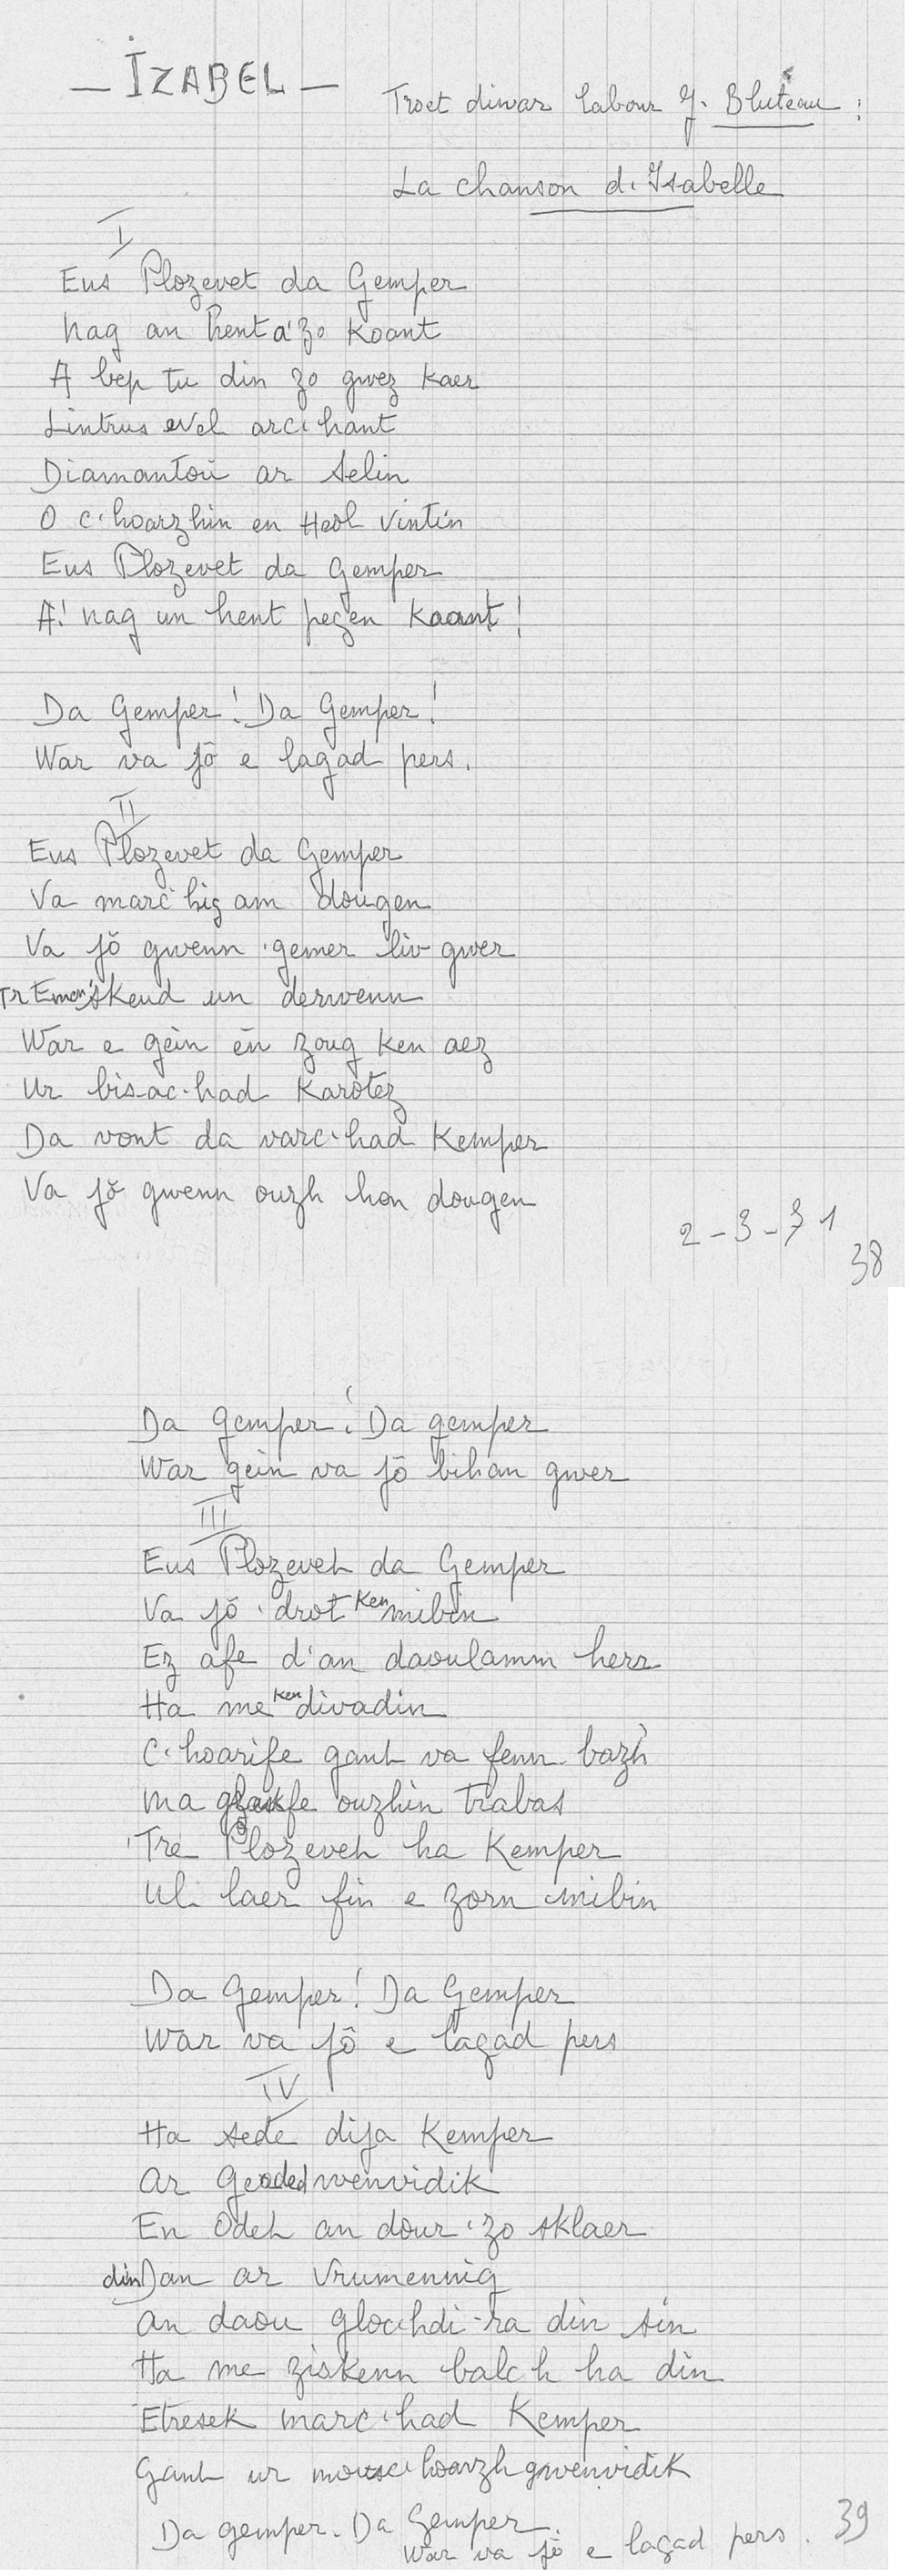 - IZABEL -
Troet diwar labour Y. Bluteau :
La chanson d'Isabelle
I
Eus Plozevet da Gemper
nag an hent a zo koant
A bep tu din zo gwez kaer
Lintrus evel arc'hant
Diamantoù ar Selin
O c'hoarzhin en Heol vintin
Eus Plozevet da Gemper
A! nag un hent pegen koant !
Da Gemper! Da Gemper!
War va jô e lagad pers.
II
Eus Plozevet da Gemper
Va marc'hig am dougen
Va jô gwenn 'gemer liv gwer
Tremen skeud un derwenn
War e gein en zoug ken aez
Ur bisac'had Karotez
Da vont da varc'had Kemper
Va jô gwenn ouzh hon dougen
2-3-31
38
Da Gemper! Da gemper
War gein va jô bihan gwer
III
Eus Plozevet da Gemper
Va jô 'drot ken mibin
Ez afe d'an daoulamm herr
Ha me ken divadin
C'hoarife gant va fenn-bazh
ma glaskfe ouzhin trabas
'Tre Plozevet ha Kemper
Ul laer fin e zorn mibin
Da Gemper! Da Gemper
War va jô e lagad pers
IV
Ha sede dija Kemper
Ar Geoded wenvidik
En Oded an dour 'zo sklaer
din Dan ar vrumennig
An daou glochdi-ra din sin
Ha me ziskenn balch ha din
Etresek marc'had Kemper
Gant ur mousc'hoarzh gwenvidik
Da gemper. Da Gemper.
War va jô e lagad pers.
39